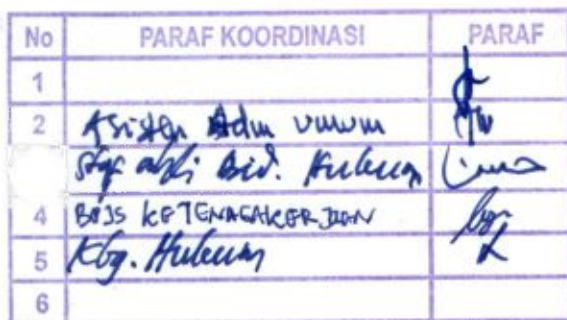 No PARAF KOORDINASI PARAF
1
2 Asisten Adm umum
Staf ahli Bid. Hukum
4 BPJS KETENAGAKERJAAN
5 Kbg. Hukum
6